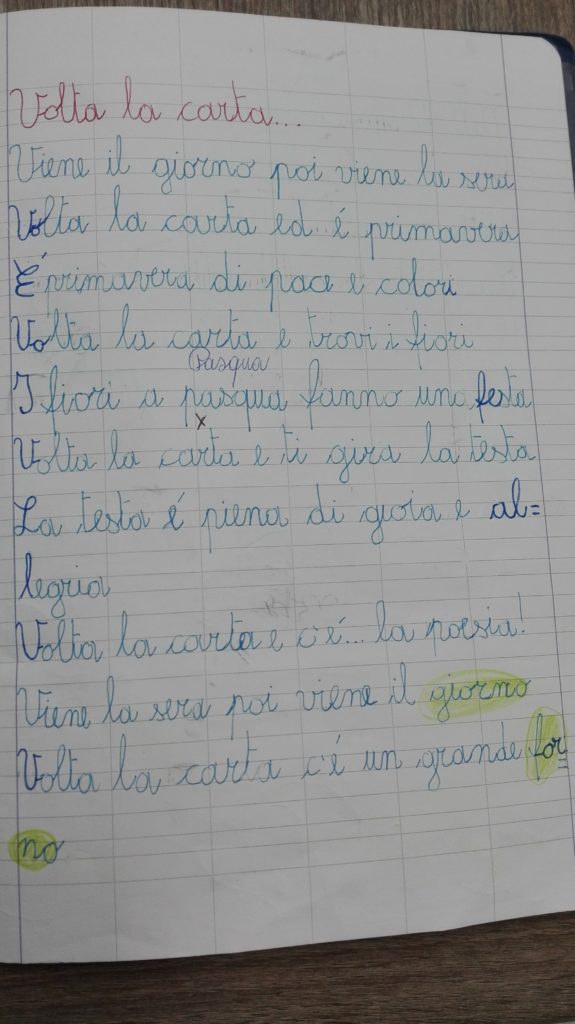 Volta la carta...
Viene il giorno poi viene la sera
Volta la carta ed é primavera
É primavera di pace e colori
Volta la carta e trovi i fiori
Pasqua
I fiori a pasqua fanno una festa
x
Volta la carta e ti gira la testa
La testa é piena di gioia e al=
legria
Volta la carta e c'é... la poesia!
Viene la sera poi viene il giorno
Volta la carta c'é un grande for=
no